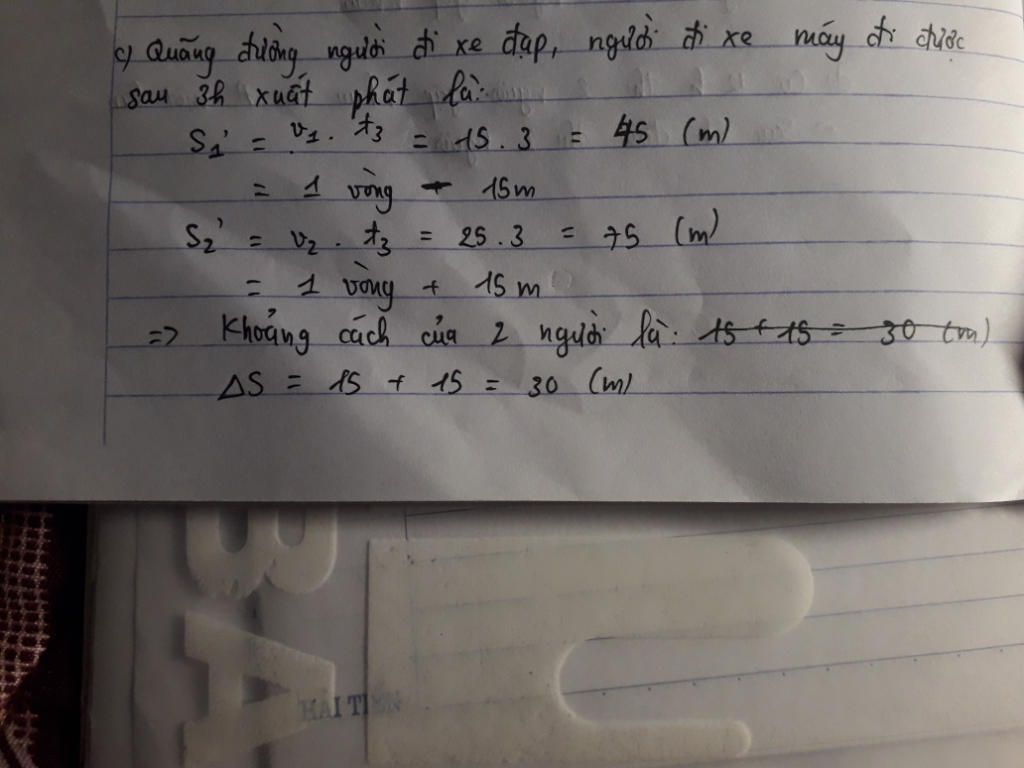 c) Quãng đường người đi xe đạp, người đi xe máy đi được
sau 3h xuất phát là:
S₁' = v₁ . t₃ = 15 . 3 = 45 (m)
= 1 vòng - 15m
S₂' = v₂ . t₃ = 25 . 3 = 75 (m)
= 1 vòng + 15m
=> Khoảng cách của 2 người là: 15 + 15 = 30 (m)
ΔS = 15 + 15 = 30 (m)
B
A
HẢI TIẾN